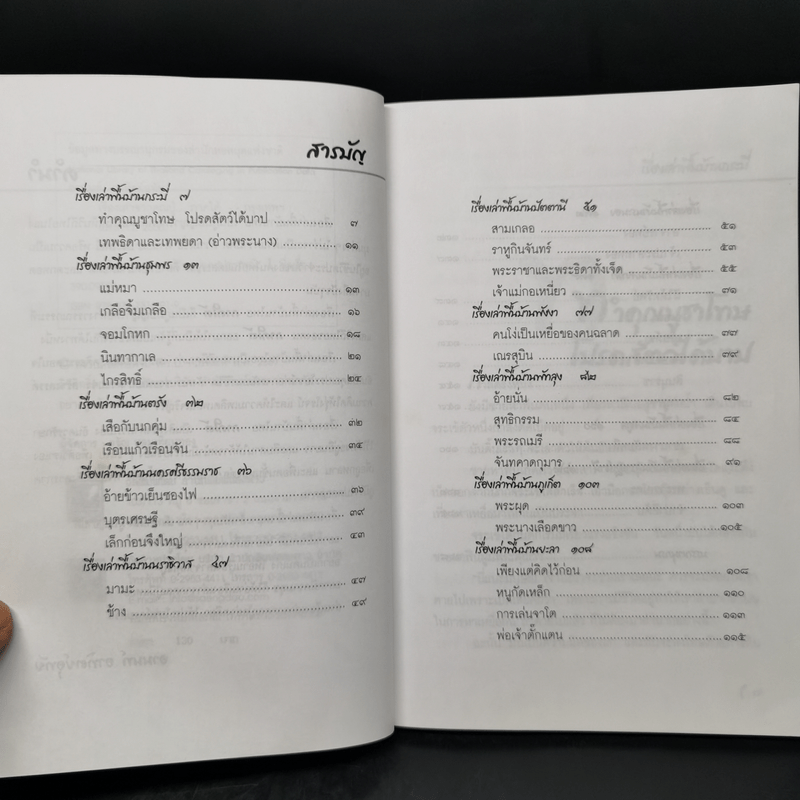 สารบัญ
เรื่องเล่าพื้นบ้านกระบี่ ๗
ทำคุณบูชาโทษ โปรดสัตว์ได้บาป ................ ๗
เทพธิดาและเทพยดา (อ่าวพระนาง) ................ ๑๑
เรื่องเล่าพื้นบ้านชุมพร ๑๓
แม่หมา ................ ๑๓
เกลือจิ้มเกลือ ................ ๑๖
จอมโกหก ................ ๑๘
นินทากาเล ................ ๒๑
ไกรสิทธิ์ ................ ๒๔
เรื่องเล่าพื้นบ้านตรัง ๓๒
เสือกับนกคุ่ม ................ ๓๒
เรือนแก้วเรือนจัน ................ ๓๔
เรื่องเล่าพื้นบ้านนครศรีธรรมราช ๓๖
อ้ายข้าวเย็นซองไฟ ................ ๓๖
บุตรเศรษฐี ................ ๓๙
เล็กก่อนจึงใหญ่ ................ ๔๓
เรื่องเล่าพื้นบ้านนราธิวาส ๔๗
มามะ ................ ๔๗
ช้าง ................ ๔๙
เรื่องเล่าพื้นบ้านปัตตานี ๕๑
สามเกลอ ................ ๕๑
ราหูกินจันทร์ ................ ๕๓
พระราชาและพระธิดาทั้งเจ็ด ................ ๕๕
เจ้าแม่กอเหนี่ยว ................ ๗๑
เรื่องเล่าพื้นบ้านพังงา ๗๗
คนโง่เป็นเหยื่อของคนฉลาด ................ ๗๗
เณรสุบิน ................ ๗๙
เรื่องเล่าพื้นบ้านพัทลุง ๘๒
อ้ายนั่น ................ ๘๒
สุทธิกรรม ................ ๘๔
พระรถเมรี ................ ๘๘
จันทคาดกุมาร ................ ๙๑
เรื่องเล่าพื้นบ้านภูเก็ต ๑๐๓
พระผุด ................ ๑๐๓
พระนางเลือดขาว ................ ๑๐๕
เรื่องเล่าพื้นบ้านยะลา ๑๐๘
เพียงแต่คิดไว้ก่อน ................ ๑๐๘
หนูกัดเหล็ก ................ ๑๑๐
การเล่นจาโต ................ ๑๑๓
พ่อเจ้าตั๊กแตน ................ ๑๑๕